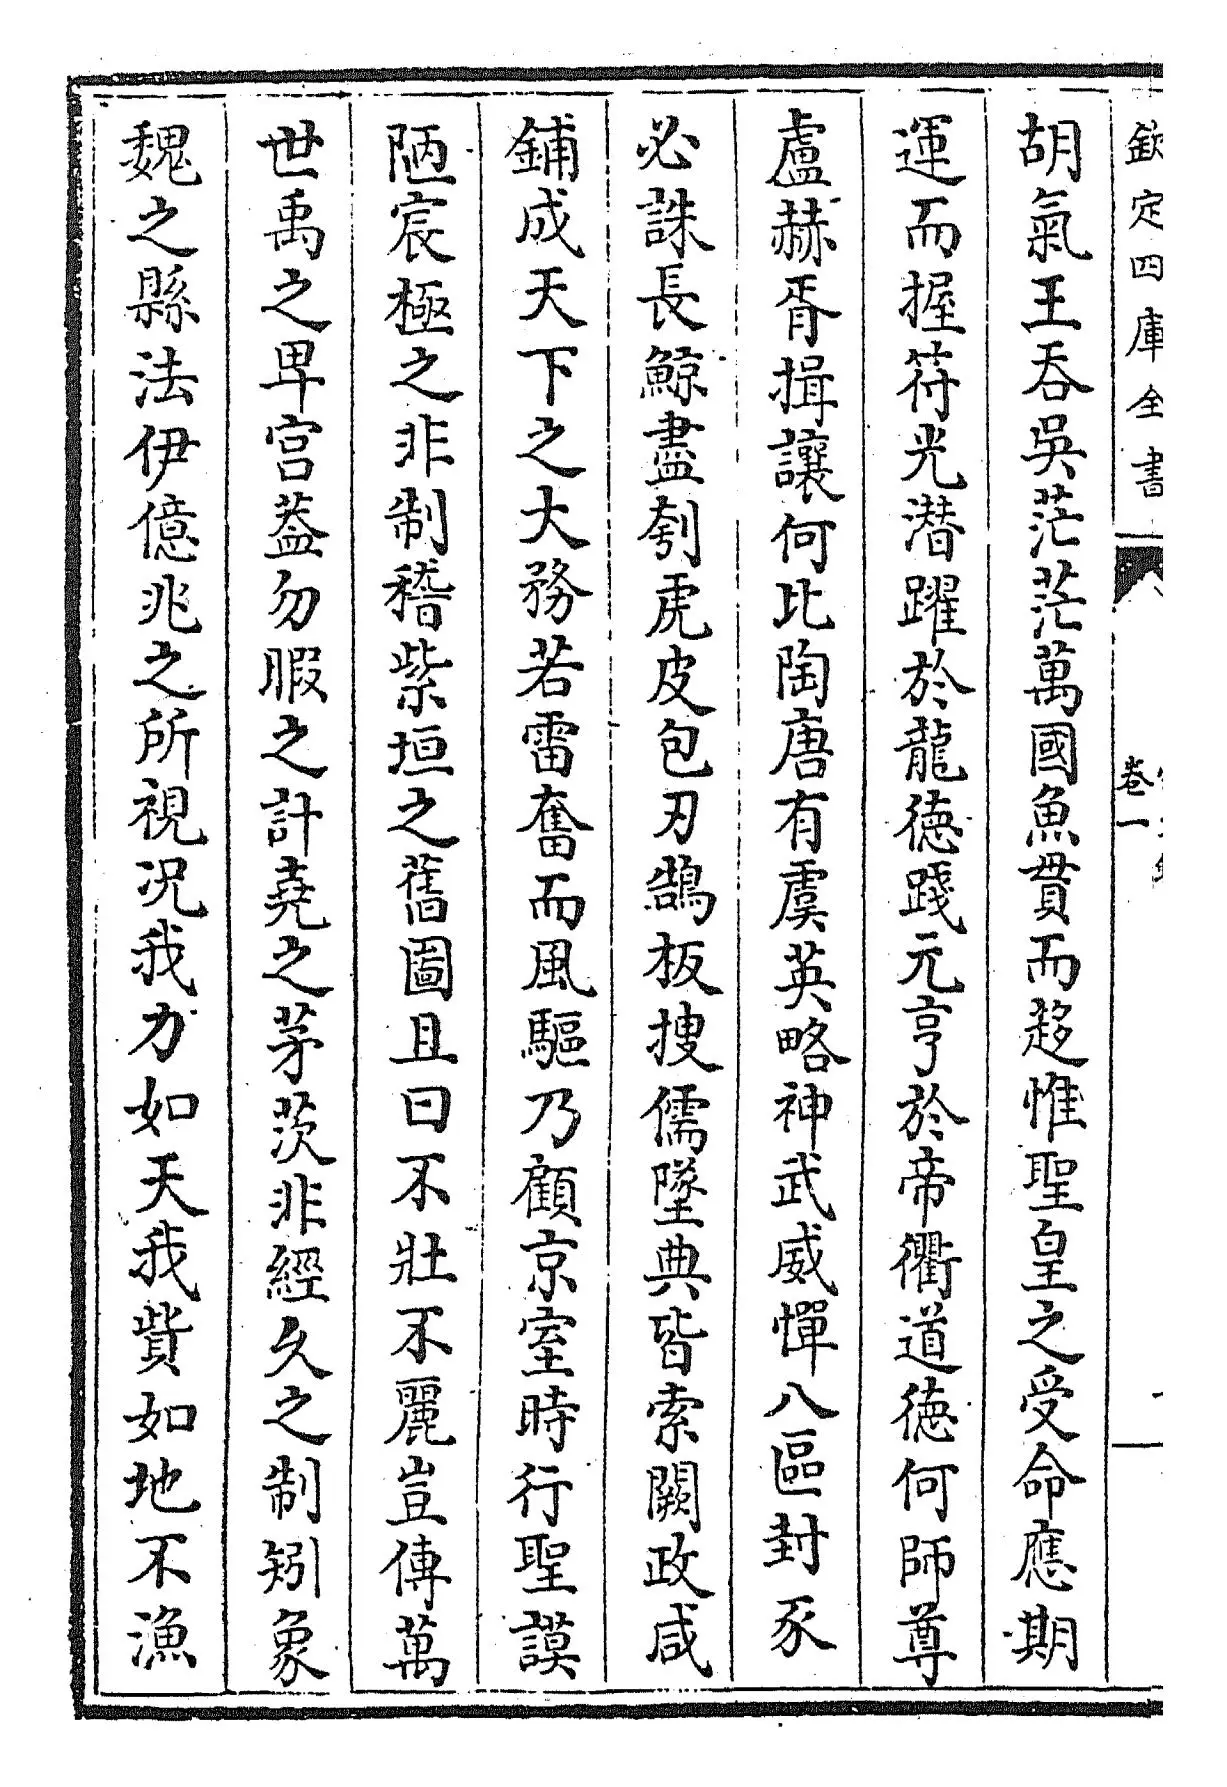 欽定四庫全書
卷一
胡氣王吞吳茫茫萬國魚貫而趍惟聖皇之受命應期
運而握符光潛躍於龍德踐元亨於帝衢道德何師尊
盧赫胥揖讓何比陶唐有虞英略神武威憚八區封豕
必誅長鯨盡刳虎皮包刃鵠板搜儒墜典皆索闕政咸
鋪成天下之大務若雷奮而風驅乃顧京室時行聖謨
陋宸極之非制稽紫垣之舊圖且曰不壯不麗豈傳萬
世禹之卑宮蓋勿暇之計堯之茅茨非經久之制矧象
魏之縣法伊億兆之所視况我力如天我貲如地不漁